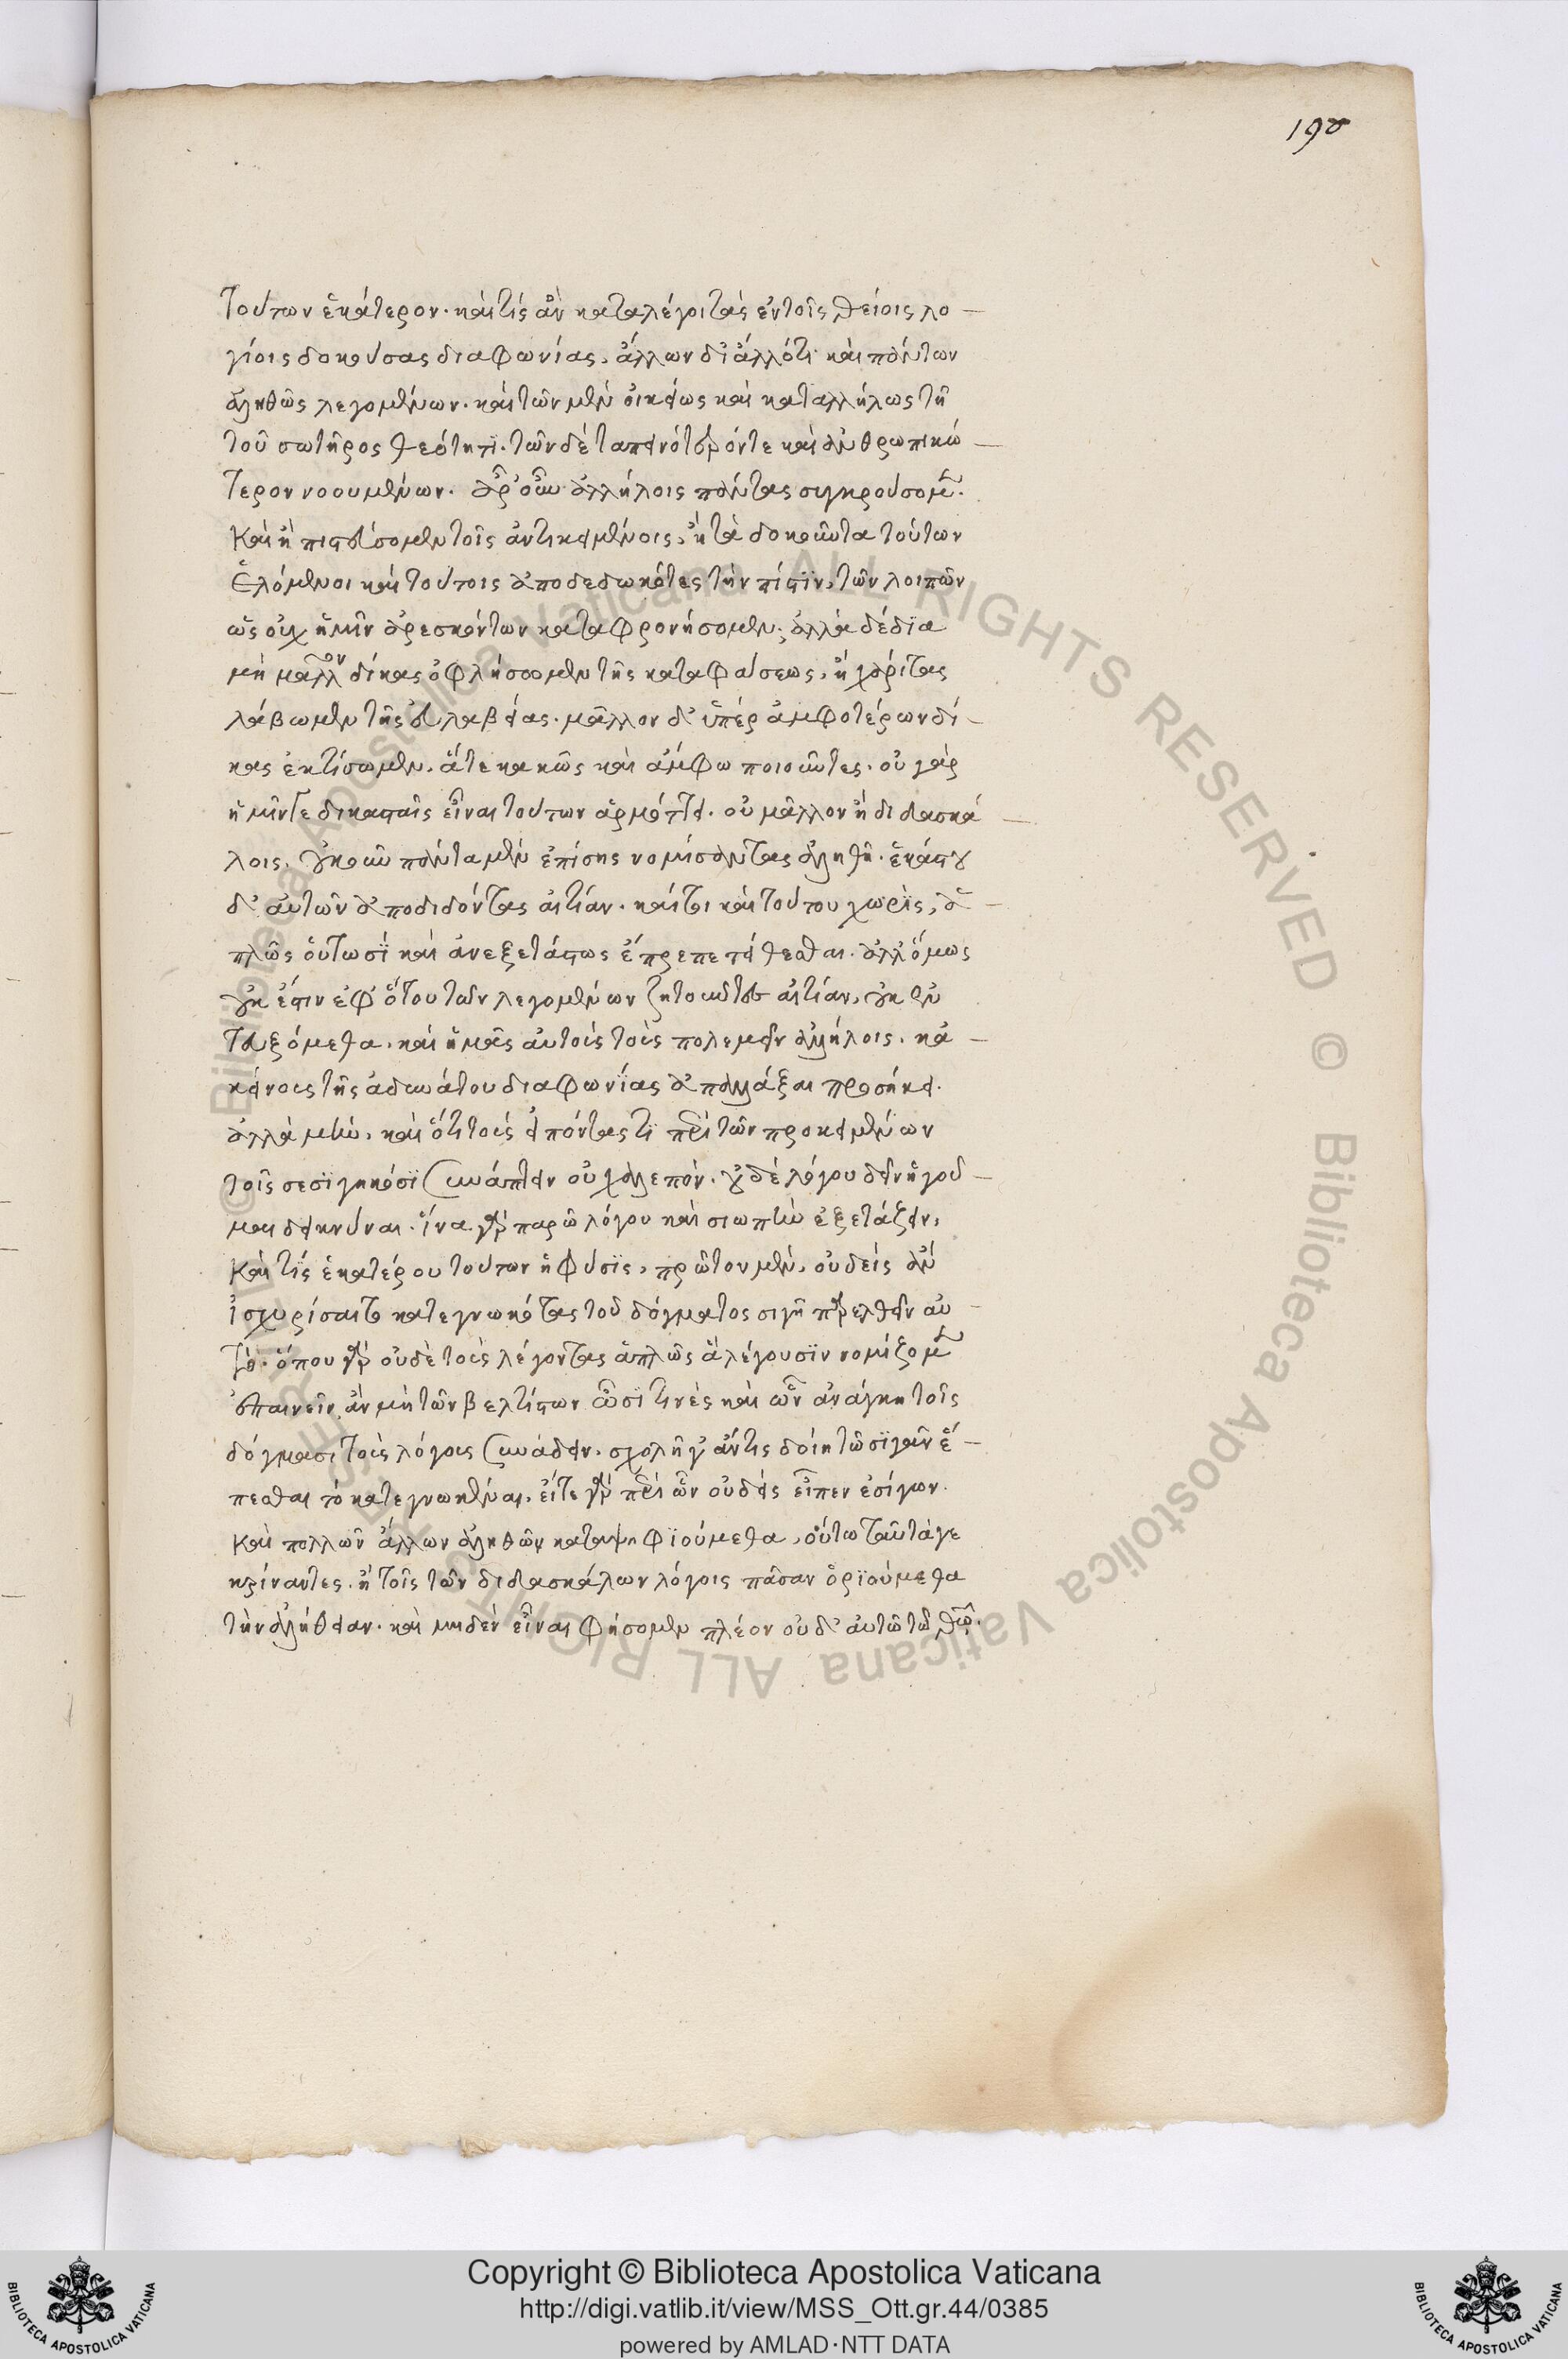 190
τούτων ἑκάτερον. καὶ τίς ἂν καταλέγοι τὰς ἐν τοῖς θείοις λο-
γίοις δοκούσας διαφωνίας, ἄλλων δι' ἄλλό τι καὶ πάντων
ἀληθῶς λεγομένων. καὶ τῶν μὲν οἰκείως καὶ καταλλήλως τῆ
τοῦ σωτῆρος θεότητι. τῶν δὲ ταπεινότερόν τε καὶ ἀνθρωπικώ-
τερον νοουμένων. ἆρ' οὖν ἀλλήλοις πάντας συγκρούσομεν.
καὶ ἢ πιστεύσομεν τοῖς ἀντικειμένοις, ἢ τὰ δοκοῦντα τούτων
ἑλόμενοι καὶ τούτοις ἀποδεδωκότες τὴν πίστϊν, τῶν λοιπῶν
ὡς οὐχ ἡμῖν ἀρεσκόντων καταφρονήσομεν; ἀλλὰ δέδϊα
μὴ μᾶλλον δίκας ὀφλήσομεν τῆς καταφάσεως, ἢ χάριτας
λάβωμεν τῆς εὐλαβείας. μᾶλλον δ' ὑπὲρ ἀμφοτέρων δί-
κας ἐκτίσωμεν. ἅτε κακῶς καὶ ἄμφω ποιοῦντες. οὐ γὰρ
ἡμῖν γε δικασταῖς εἶναι τούτων ἁρμόττει. οὐ μᾶλλον ἢ διδασκά-
λοις. οὐκοῦν πάντα μὲν ἐπίσης νομίσαντας ἀληθῆ. ἑκάστου
δ' αὐτῶν ἀποδιδόντας αἰτίαν. καί τοι καὶ τούτου χωρὶς, ἁ-
πλῶς οὑτωσὶ καὶ ἀνεξετάστως ἔπρεπε πείθεσθαι. ἀλλ' ὅμως
οὐκ ἔστιν ἐφ' ὅτου τῶν λεγομένων ζητοῦντες αἰτίαν, οὐκ ἐν
τευξόμεθα. καὶ ἡμᾶς αὐτοὺς τοὺς πολεμεῖν ἀλλήλοις. κἀ-
κείνους τῆς ἀδυνάτου διαφωνίας ἀπαλλάξαι προσήκει.
ἀλλὰ μὴν, καὶ ὅτι τοὺς εἰπόντας τι περὶ τῶν προκειμένων
τοῖς σεσϊγηκόσϊ συνάπτειν οὐ χαλεπὸν. οὐδὲ λόγου δεῖν ἡγοῦ-
μαι δεικνύναι. ἵνα γὰρ παρῶ λόγου καὶ σιωπὴν ἐξετάζειν,
καὶ τίς ἑκατέρου τούτων ἡ φύσϊς, πρῶτον μὲν, οὐδεὶς ἂν
ἰσχυρίσαιτο κατεγνωκότας τοῦ δόγματος σιγῆ παρελθεῖν αὐ-
τό. ὅπου γὰρ οὐδὲ τοὺς λέγοντας ἁπλῶς ἃ λέγουσϊν νομίζομεν
ἐπαινεῖν, ἂν μὴ τῶν βελτίστων ὦσϊ τινὲς καὶ ὧν ἀνάγκη τοῖς
δόγμασι τοὺς λόγους συνάδειν. σχολῆ γ' ἄν τις δοίη τῶ σϊγᾶν ἕ-
πεσθαι τὸ κατεγνωκέναι. εἴτε γὰρ περὶ ὧν οὐδεὶς εἶπεν ἐσίγων.
καὶ πολλῶν ἄλλων ἀληθῶν καταψηφϊούμεθα, οὕτω ταῦτά γε
κρίναντες. ἢ τοῖς τῶν διδασκάλων λόγοις πᾶσαν ὁρϊούμεθα
τὴν ἀλήθειαν. καὶ μηδὲν εἶναι φήσομεν πλέον οὐδ' αὐτῶ τῶ θεῶ.
Copyright © Biblioteca Apostolica Vaticana
http://digi.vatlib.it/view/MSS_Ott.gr.44/0385
powered by AMLAD·NTT DATA
BIBLIOTECA APOSTOLICA VATICANA
BIBLIOTECA APOSTOLICA VATICANA
© Biblioteca Apostolica Vaticana ALL RIGHTS RESERVED © Biblioteca Apostolica Vaticana ALL RIGHTS RESERVED